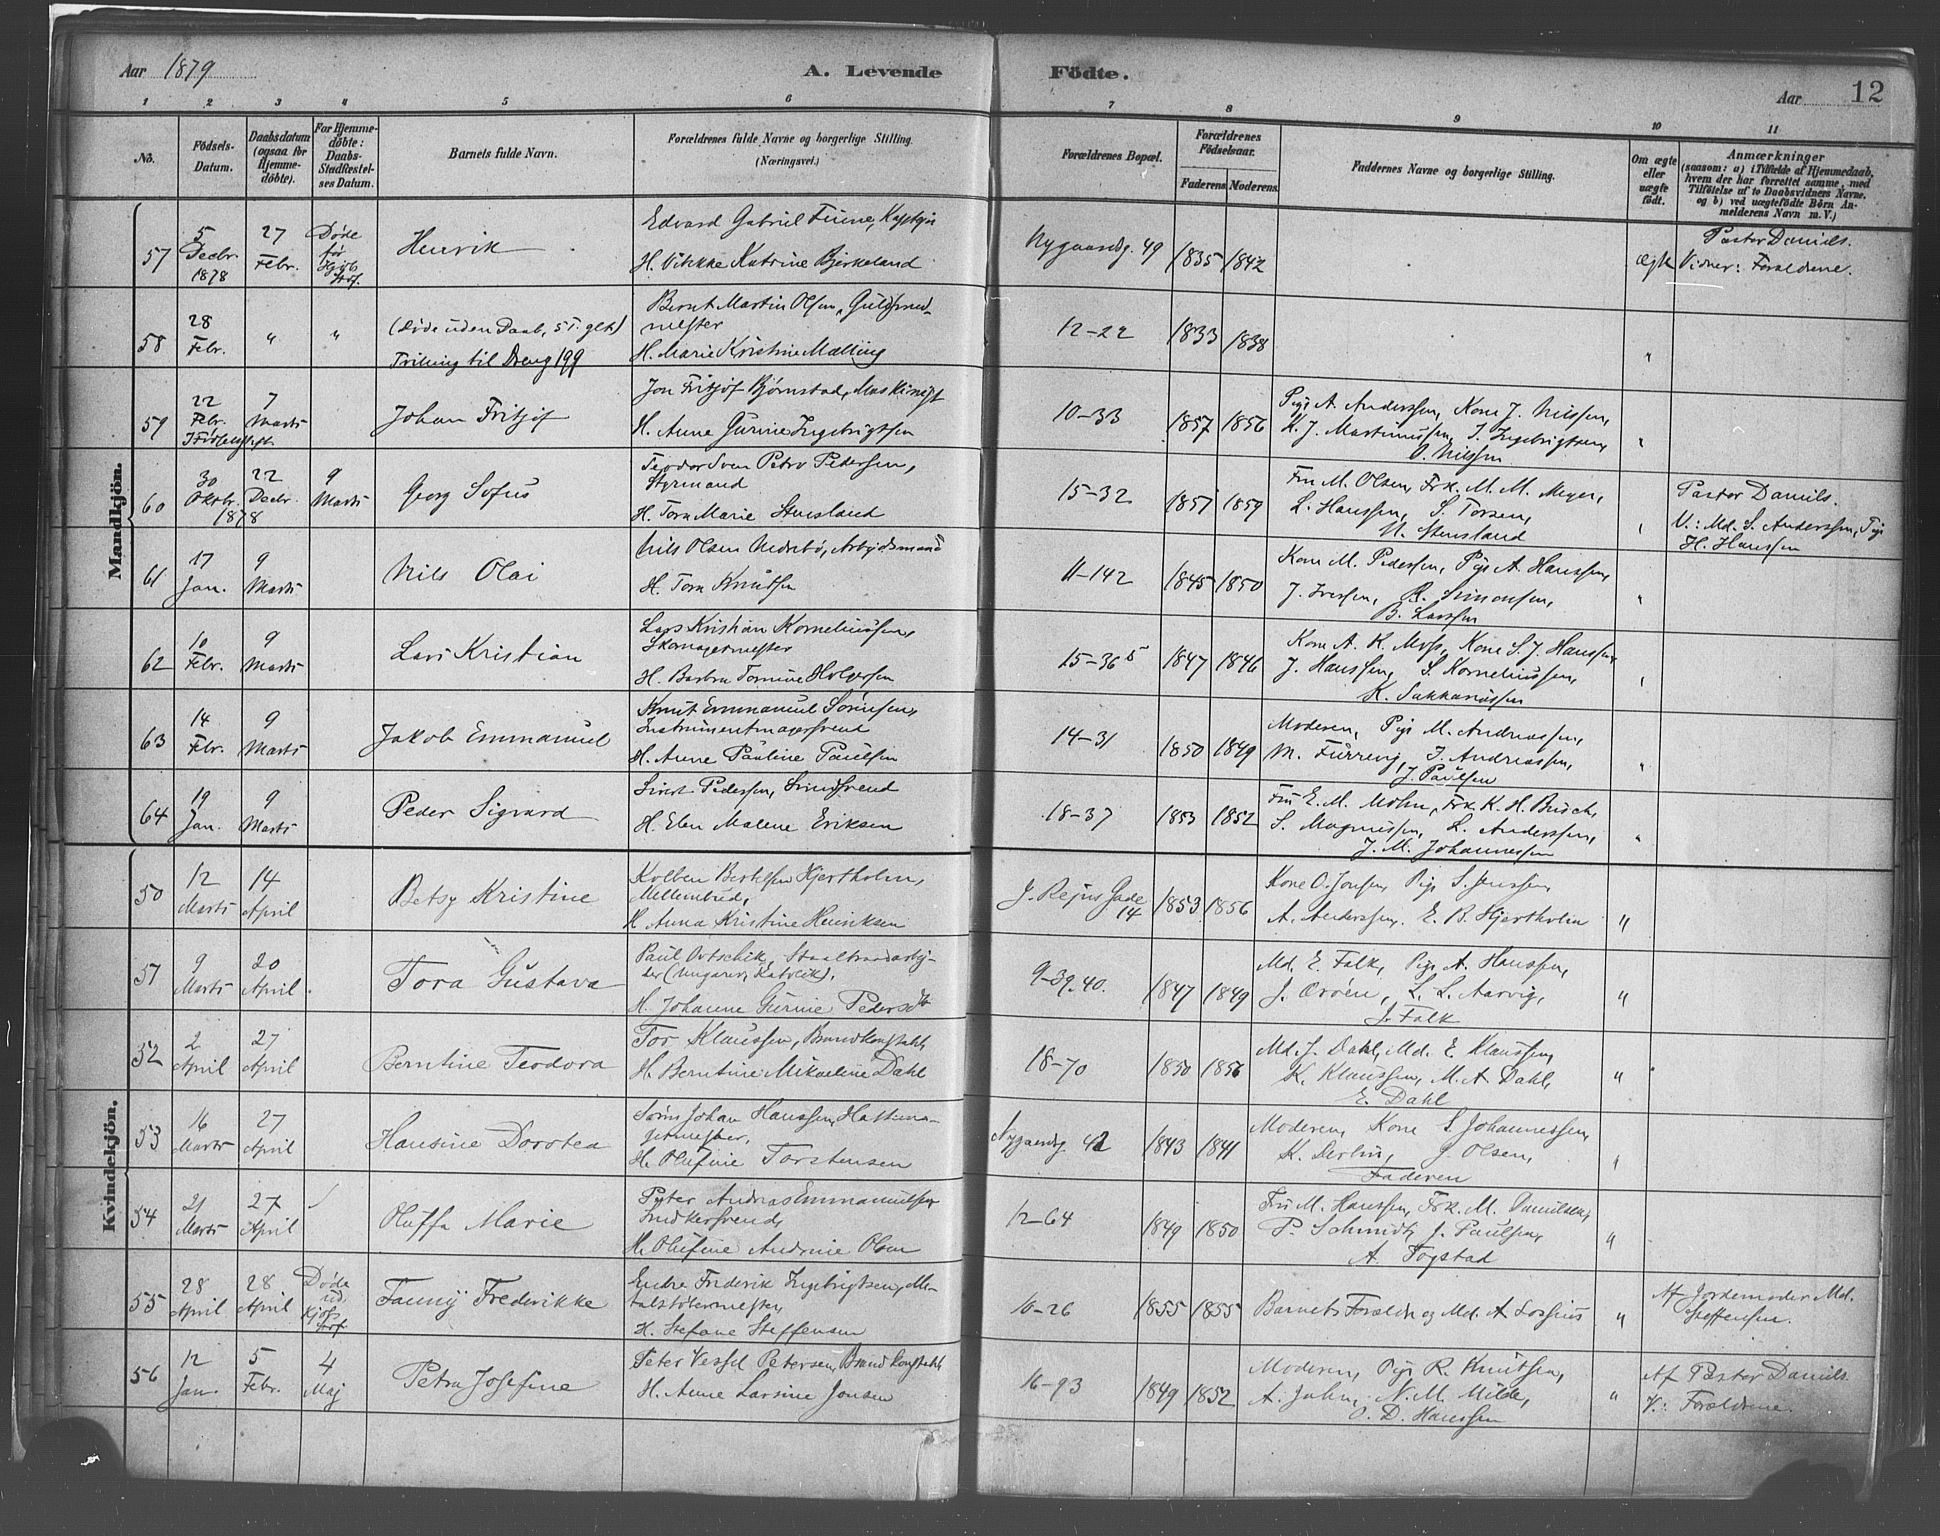 Aar 1879 A. Levende Födte. Aar 12
1 2 3 4 5 6 7 8 9 10 11
No. Födsels-Datum. Daabsdatum (ogsaa for Hjemme-döbte). For Hjemme-döbte: Daabs-Stadfæstel-ses Datum. Barnets fulde Navn. Forældrenes fulde Navne og borgerlige Stilling. (Næringsvei.) Forældrenes Bopæl. Forældrenes Födselsaar. Faderens Moderens. Faddernes Navne og borgerlige Stilling. Om ægte eller uægte födt. Anmærkninger (saasom: a) i Tilfælde af Hjemmedaab, hvem der har forrettet samme, med Tilföielse af to Daabsvidners Navne, og b) ved uægtefödte Börn An-melderens Navn m. V.)
Mandkjön.
57 5 Decbr. 1878 27 Febr. Døde før Henrik Edvard Gabriel
H. Katrine Bjerkeland Nygaardsg. 49 1835 1842 Ægte Pastor Daniels. Vidner: Forældrene.
58 28 Febr. " " (Døde uden Daab, 5 T. glt) Bernt Martin Olsen, Guldsmed-
mester
Tvilling til Dreng 199 H. Marie Kristine Malling 12-22 1833 1838 "
59 22 Febr. 7 Marts Johan Fritjof Jon Fritjof Bjørnstad, Maskinist
H. Anne Gurine Ingebrigtsen 10-33 1857 1856 Pige A. Anderssen, Kone J. Nilssen,
K. J. Martinussen, J. Ingebrigtsen,
O. Nilssen "
60 30 Oktbr. 1878 22 Decbr. 9 Marts Georg Sofus Teodor Sven Petro Pedersen,
Styrmand
H. Tora Marie Stensland 15-32 1857 1859 Fru M. Olsen, Frk. M. M. Meyer,
L. Hanssen, S. Torsen,
N. Stensland " Pastor Daniels.
V.: Md. S. Anderssen, Pige
H. Hanssen
61 17 Jan. 9 Marts Nils Olai Nils Olsen Nedrebø, Arbejdsmand
H. Tora Knutsen 11-142 1845 1850 Kone M. Pedersen, Pige A. Hanssen,
J. Iverssen, R. Simonsen,
B. Larssen "
62 10 Febr. 9 Marts Lars Kristian Lars Kristian Korneliussen,
Skomagermester
H. Barbra Tomine Holgersen 15-36 b 1847 1846 Kone A. K. Moss, Kone S. J. Hanssen,
J. Hanssen, S. Korneliussen,
K. Sakkariassen "
63 14 Febr. 9 Marts Jakob Emmanuel Knut Emmanuel Sørensen,
Instrumentmagersvend
H. Anne Pauline Paulsen 14-31 1850 1849 Moderen, Pige M. Andreassen,
M. Furrevig, J. Andreassen,
J. Paulsen "
64 19 Jan. 9 Marts Peder Sigvard Sivert Pederssen, Smedsvend
H. Elen Malene Eriksen 18-37 1853 1852 Fru E. M. Mohn, Frk. K. H. Busch,
S. Magnussen, L. Anderssen,
J. M. Johannessen "
Kvindekjön.
50 12 Marts 14 April Betsy Kristine Kolben Bertelsen Hjertholm,
H. Anna Kristine Henriksen J. Rejus Gade 14 1853 1856 Kone O. Jonsen, Pige S. Jenssen,
A. Anderssen, E. B. Hjertholm "
51 9 Marts 20 April Tora Gustava Paul Staaltraadarbej-
der (Ungarer, Katolik),
H. Johanne Gurine Pedersdtr 9-39.40. 1847 1849 Md. E. Falk, Pige A. Hanssen,
J. Ørøen, L. L. Aarvig,
J. Falk "
52 2 April 27 April Berntine Teodora Tor Klaussen, Brandkonstabel,
H. Berntine Mikaeline Dahl 18-70 1850 1856 Md. J. Dahl, Md. E. Klaussen,
K. Klaussen, M. A. Dahl,
E. Dahl "
53 16 Marts 27 April Hansine Dorotea Søren Johan Hanssen, Hattema-
germester,
H. Olufine Torstensen Nygaardsg 42 1843 1841 Moderen, Kone S. Johannessen,
K. Derlin, J. Olsen,
Faderen "
54 21 Marts 27 April Oluffa Marie Peter Andreas Emmanuelsen,
Snedkersvend,
H. Olufine Andrine Olsen 12-64 1849 1850 Fru M. Hanssen, Frk. M. Danielsen,
P. Schmidt, J. Paulsen,
A. Fogstad "
55 28 April 28 April Døde Fanny Frederikke Endre Frederik Ingebrigtsen, Me-
talstøbermester,
H. Stefane Steffensen 16-26 1855 1855 Barnets Forældre og Md. A. Lossius " Af Jordemoder Md.
Steffensen.
56 12 Jan. 5 Febr. 4 Maj Petra Josefine Peter Vessel Petersen, Brandkonstabel
H. Anne Larsine Jonsen 16-93 1849 1852 Moderen, Pige R. Knutsen,
A. John, N. M. Milde,
O. D. Hanssen " Af Pastor Daniels
V.: Forældrene.